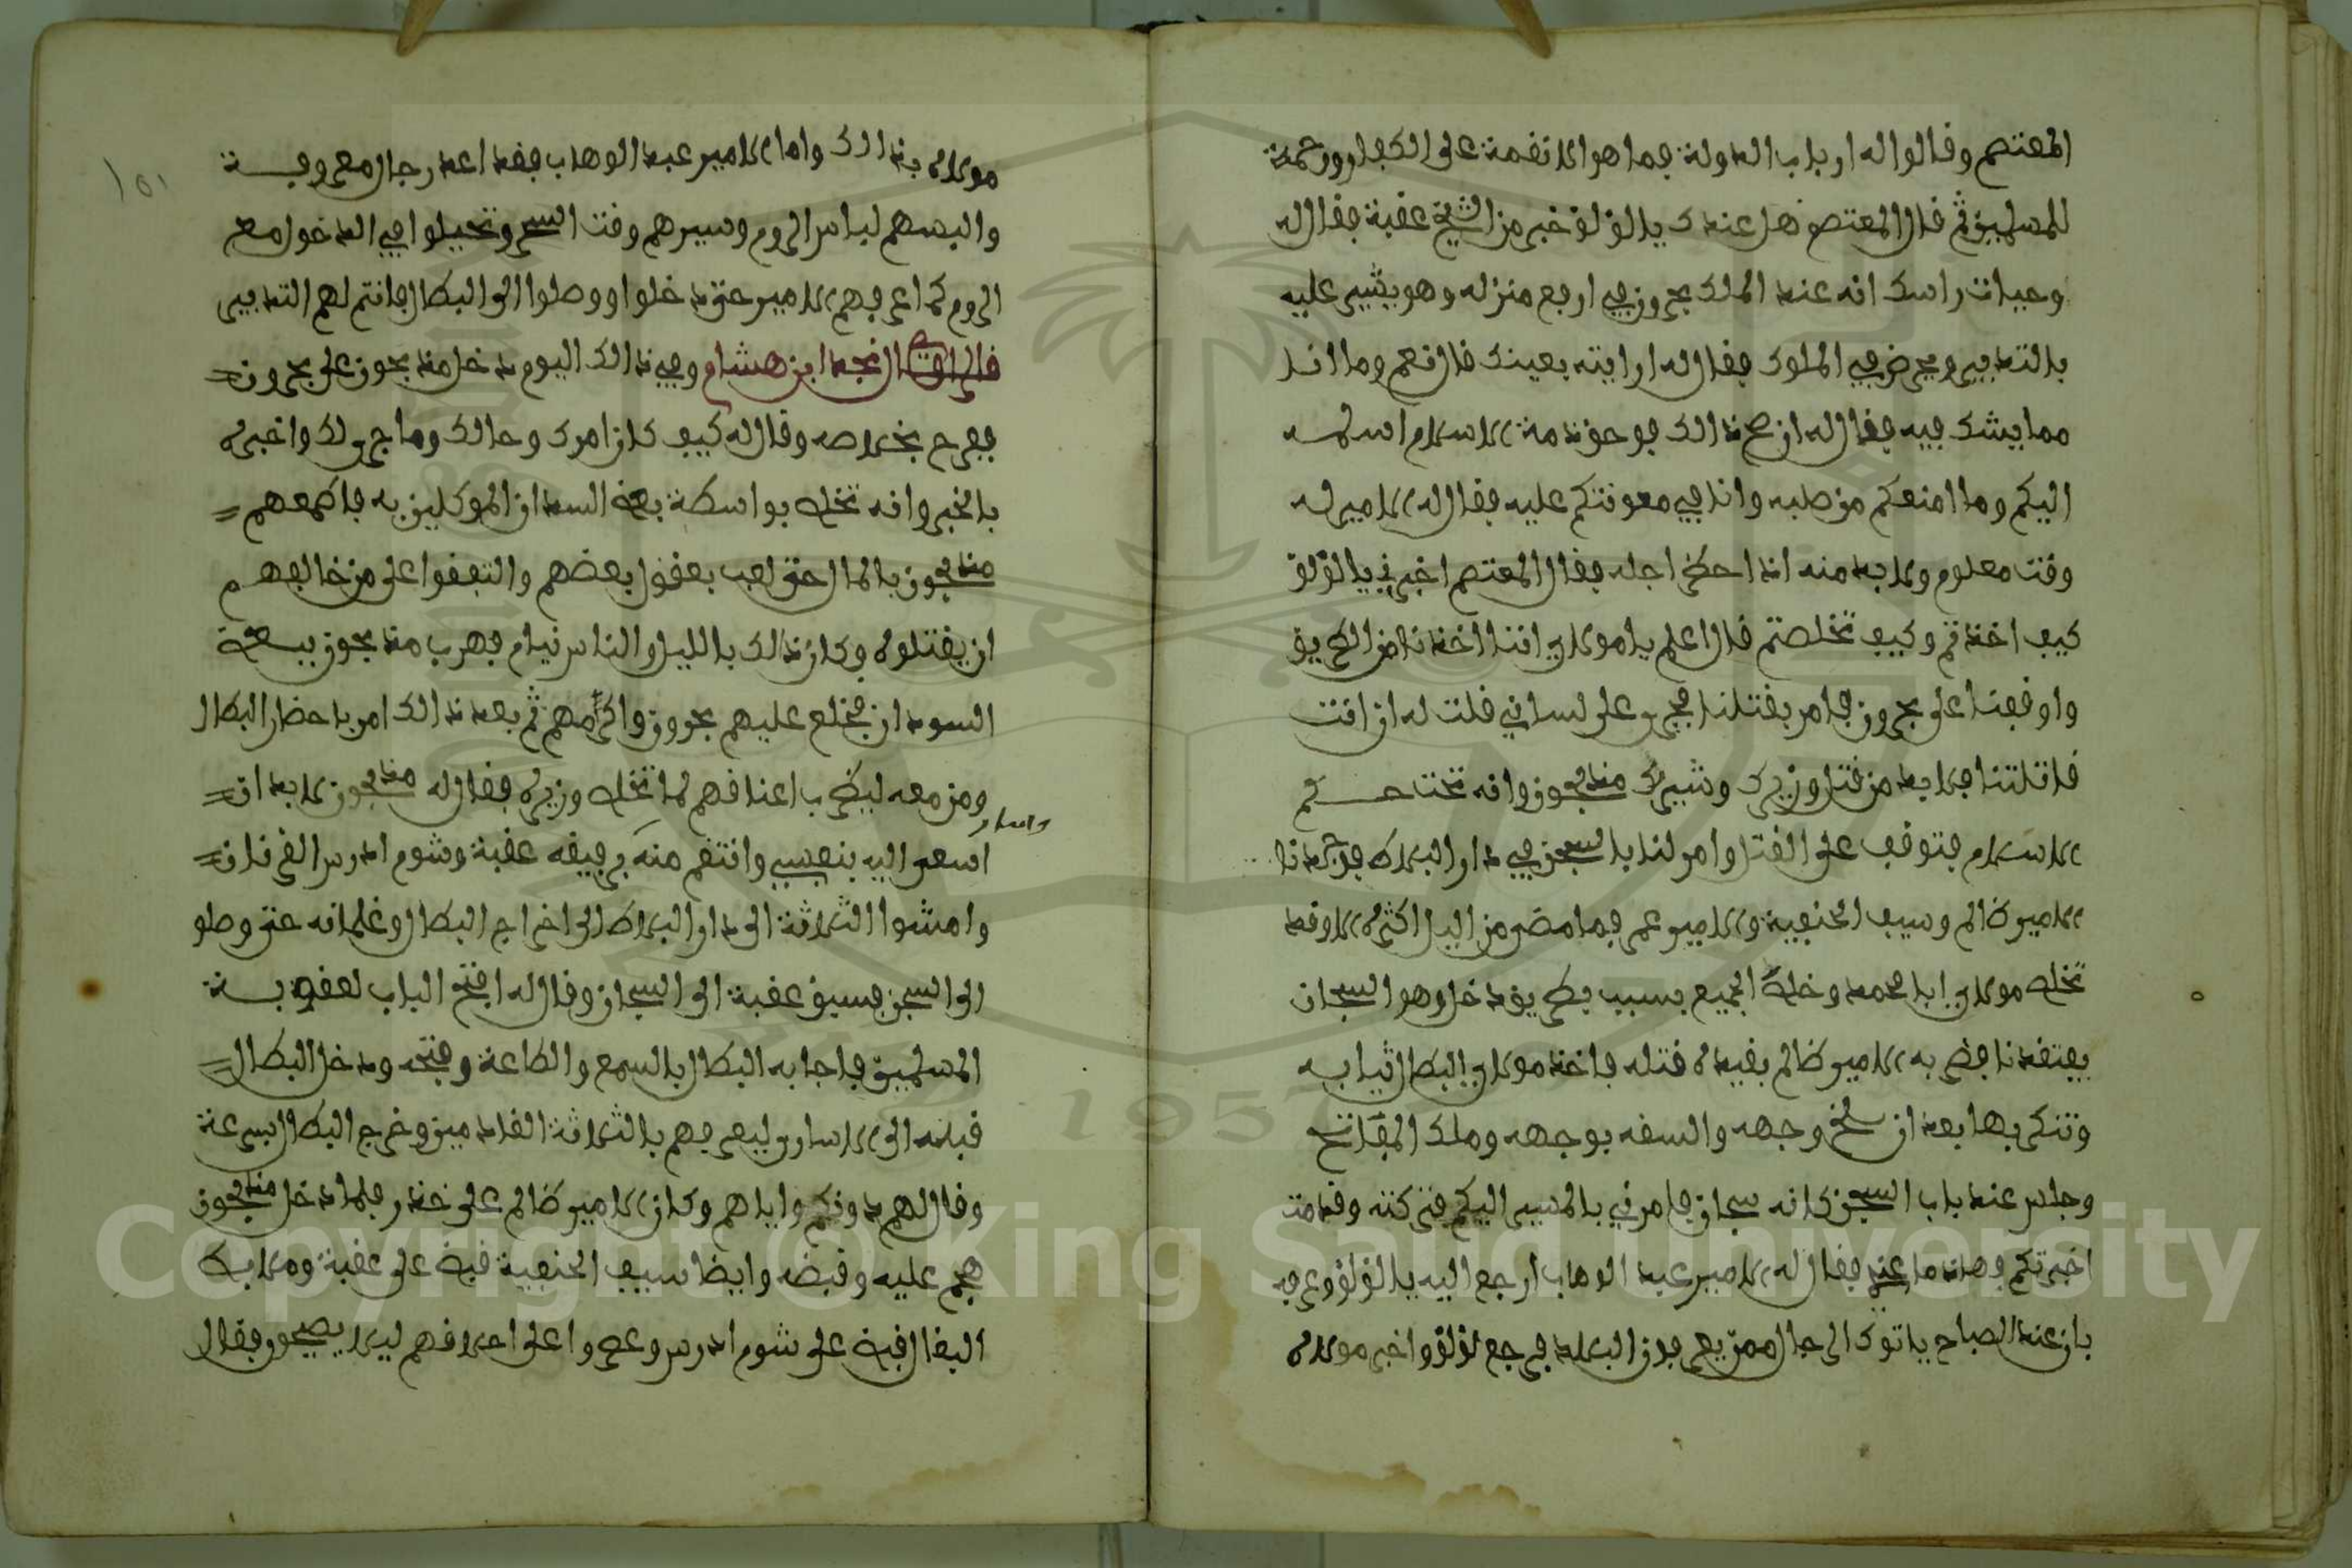 المعتصم وقالوا له ارباب الدولة فما هو الا نقمة على الكفار ورحمة
للمسلمين ثم قال المعتصم هل عندك يا لؤلؤ خبر من الشيخ عقبة فقال له
وحيات راسك انه عند الملك بحرون في ارفع منزله وهو يشير عليه
بالتدبير ويحرض في الملوك فقال له ارايته بعينك قال نعم وما انا
مما يشك فيه فقال له ان صح ذالك فوحق ذمة الاسلام اسلمه
اليكم وما امنعكم من صلبه وانا في معونتكم عليه فقال له الامير له
وقت معلوم ولا بد منه اذا حضر اجله فقال المعتصم اخبرني يا لؤلؤ
كيف اخذتم وكيف تخلصتم قال اعلم يا مولاي اننا اخذنا من الطريق
واوقفنا على بحرون فامر بقتلنا فجرى على لساني قلت له ان انت
قاتلتنا فلا بد من قتل وزيرك ومشيرك مندبحون وانه تحت حكم
الاسلام فتوقف على القتل وامر لنا بالسجن في دار البلاط فوجدنا
الامير ظالم وسيف الحنفية والامير عمر فما مضى من اليل اكثره الا وقد
تخلص مولاي ابا محمد وخلص الجميع بسبب بطريق دخل وهو السجان
يفتقدنا فضربه الامير ظالم بقيده قتله فاخذ مولاي البطال ثيابه
وتنكر بها بعد ان سلخ وجهه والسفه بوجهه وملك المفاتح
وجلس عند باب السجن كانه سجان فامرني بالمسير اليكم فتركته وقدمت
اخبرتكم وهذا ما عندي فقال له الامير عبد الوهاب ارجع اليه يا لؤلؤ وعرفه
بان عند الصباح ياتوك الرجال ممن يعرفون البلد فرجع لؤلؤ واخبر مولاه
مولاه بذالك واما الامير عبد الوهاب فقد اعد رجال معروفة
والبسهم لباس الروم وسيرهم وقت السحر وتحيلوا في الدخول مع
الروم كما عرفهم الامير حتى دخلوا ووصلوا الى البطال فانتم لهم التدبير
قال الراوي نجد ابن هشام وفي ذالك اليوم دخل مندبحون على بحرون
ففرح بخلاصه وقال له كيف كان امرك وحالك وما جرى لك واخبره
بالخبر وانه تخلص بواسطة بعض السودان الموكلين به فاطمعهم
مندبحون بالمال حتى لعب بعقول بعضهم واتفقوا على من خالفهم
ان يقتلوه وكان ذالك بالليل والناس نيام فهرب مندبحون ببعض
السودان فخلع عليهم بحرون واكرمهم ثم بعد ذالك امر باحضار البطال
ومن معه ليضرب اعناقهم لما تخلص وزيره فقال له مندبحون لا بد ان
اسعى اليه بنفسي وانتقم منه ورفيقه عقبة وشومدرس القرنان
وامشوا الثلاثة الى دار البلاط الى اخراج البطال وغلمانه حتى وصلو
الى السجن فسبق عقبة الى السجان وقال له افتح الباب لعقوبة
المسلمين فاجابه البطال بالسمع والطاعة وفتحه ودخل البطال
قبله الى الاسارى ليعرفهم بالثلاثة القادمين وخرج البطال بسرعة
وقال لهم دونكم واياهم وكان الامير ظالم على حذر فلما دخل مندبحون
هجم عليه وقبضه وايضا سيف الحنفية قبض على عقبة وملابط
البغال قبض على شومدرس وعصروا على احلاقهم ليلا يصيحون فقال